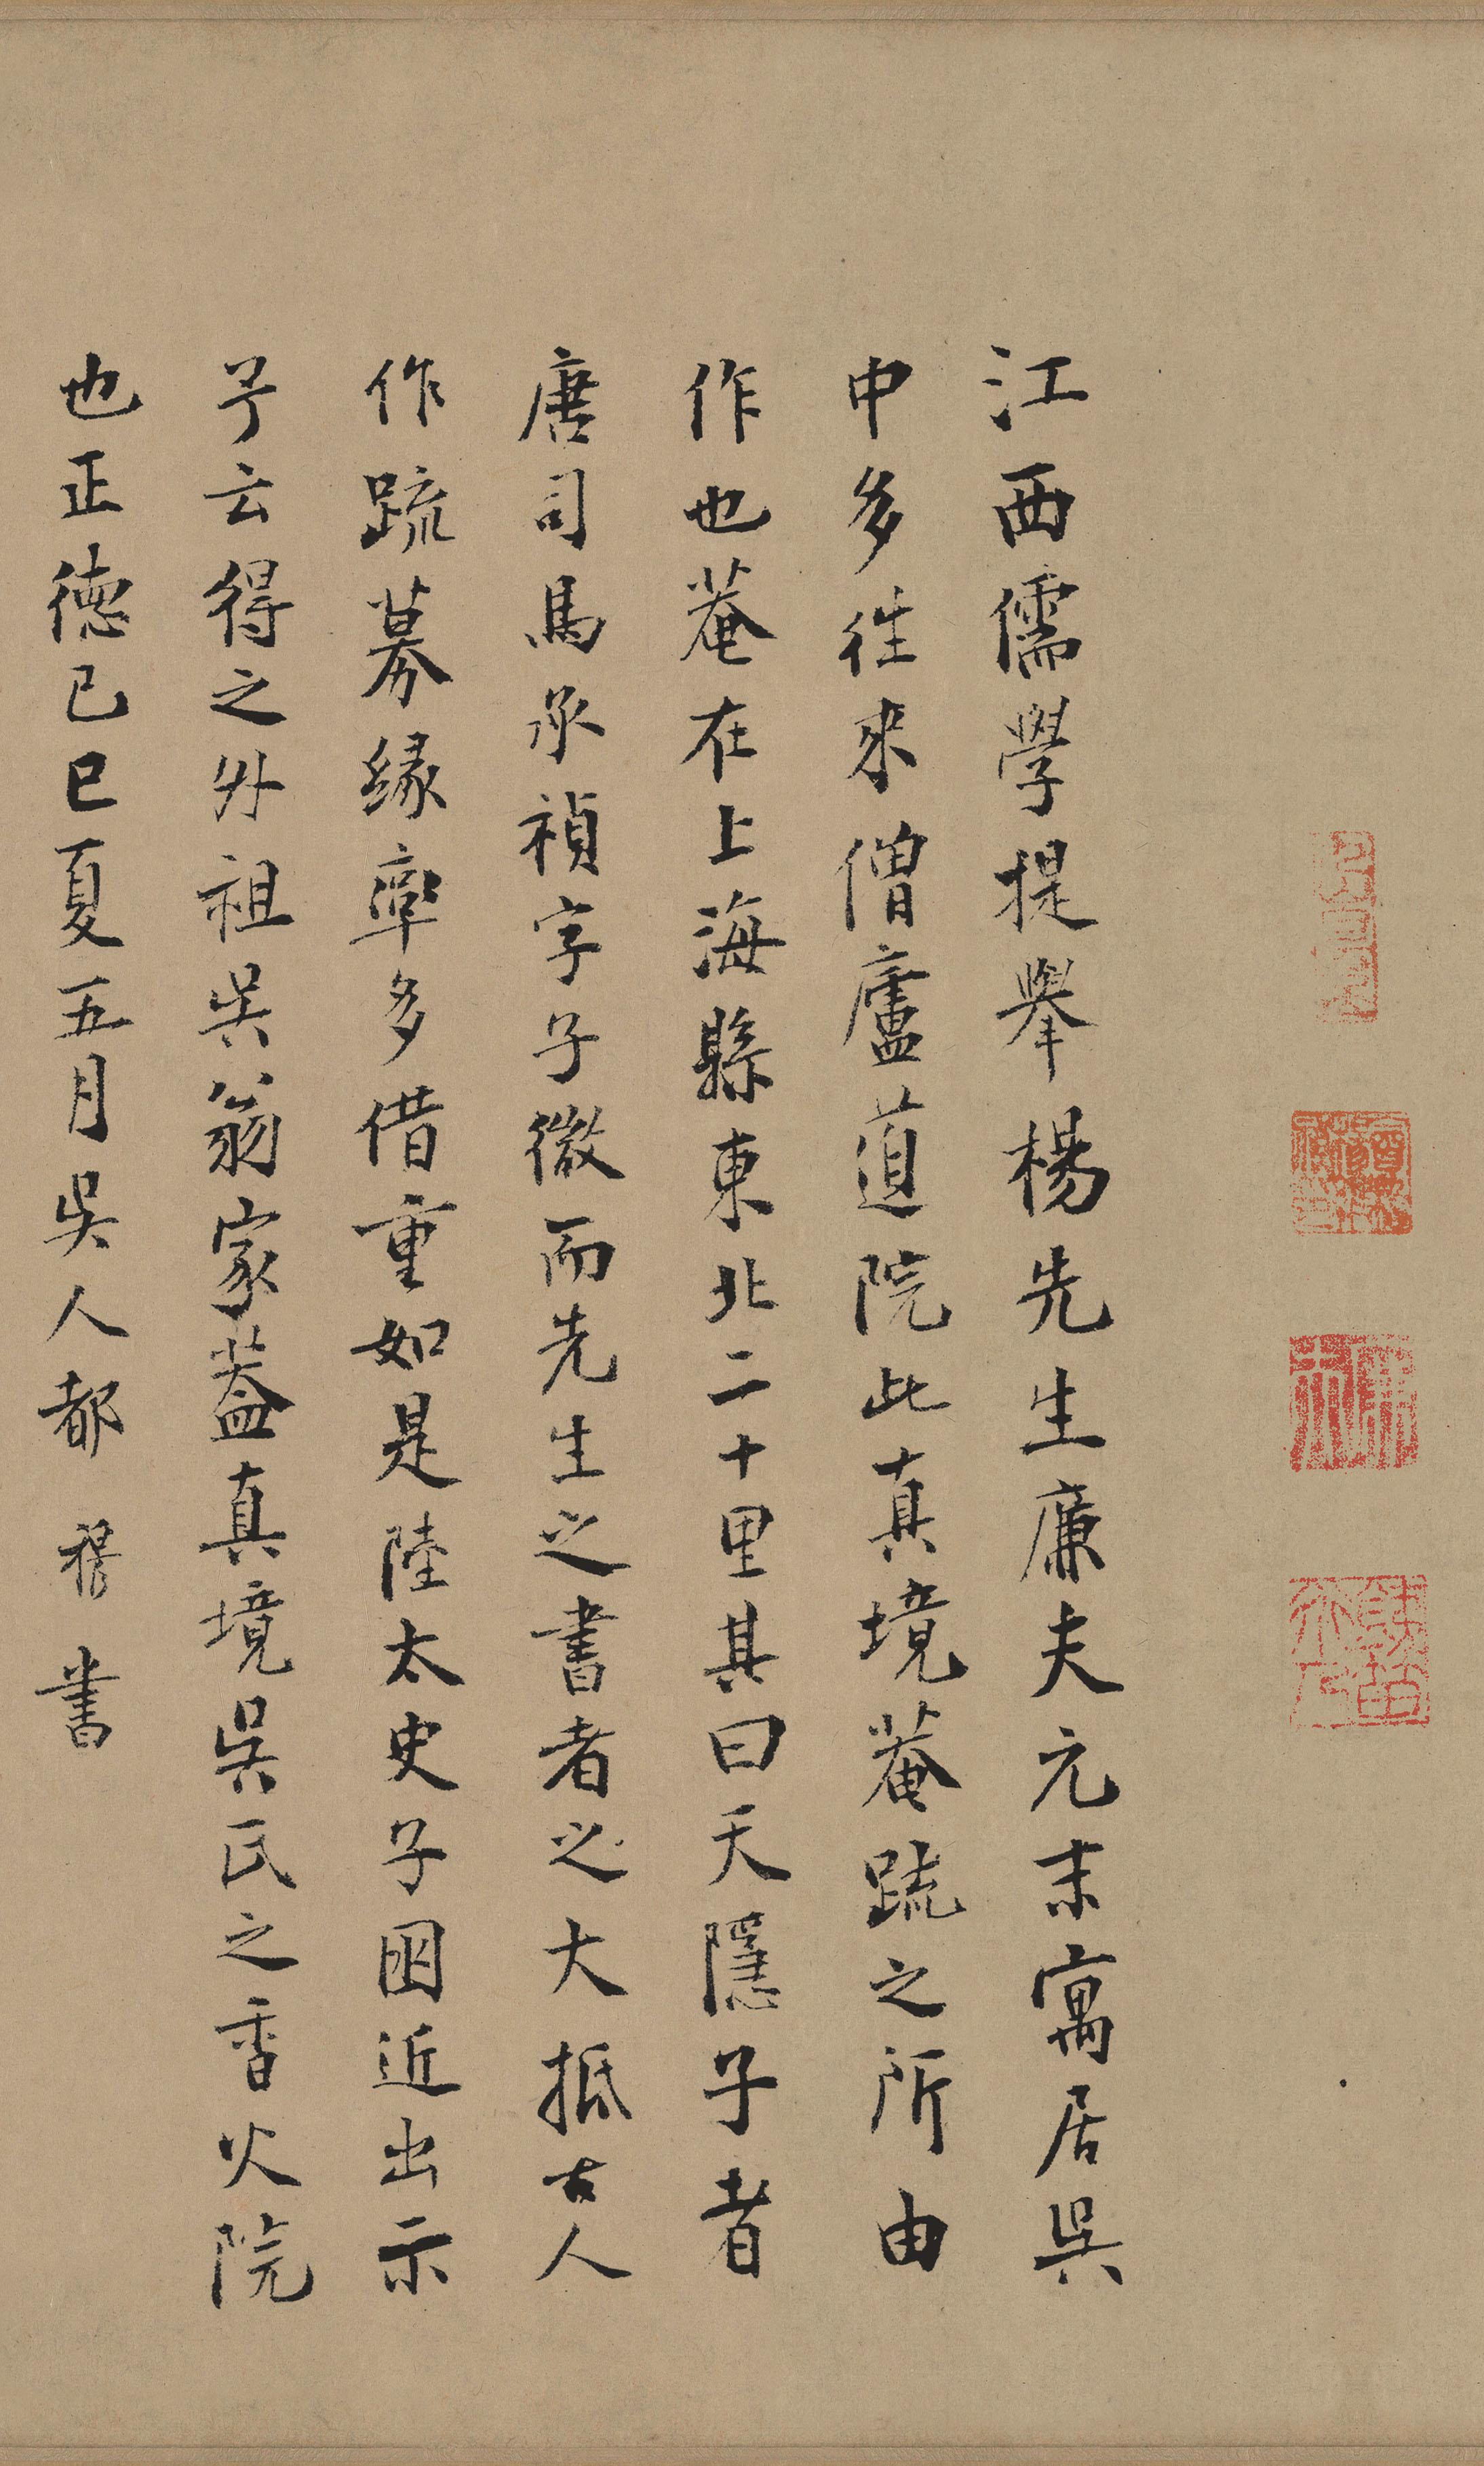 江西儒學提舉楊先生廉夫元末寓居吳
中多往來僧廬道院此真境菴疏之所由
作也菴在上海縣東北二十里其曰天隱子者
唐司馬承禎字子微而先生之書者必大抵古人
作疏募緣率多借重如是陸太史子困近出示
予云得之外祖吳翁家蓋真境吳氏之香火院
也正德己巳夏五月吳人都穆書